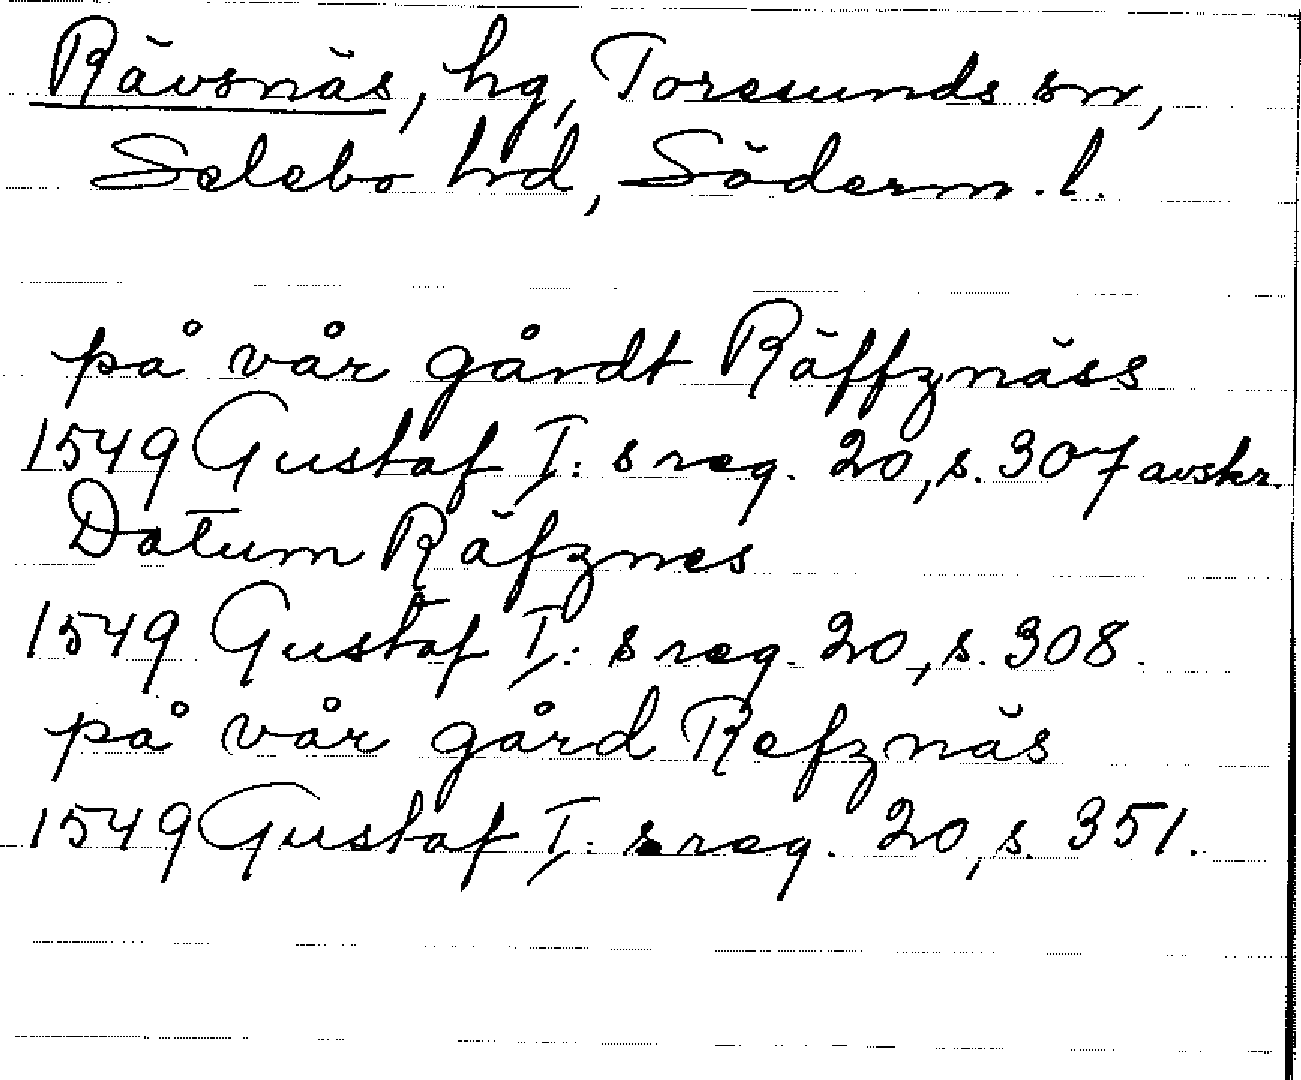 Rävsnäs, hg, Toresunds sn,
Selebo hrd, Söderm. l.
på vår gårdt Räffznäss
1549 Gustaf I:s reg. 20, s. 307 avskr.
Datum Räfznes
1549 Gustaf I:s reg. 20, s. 308.
på vår gård Refznäs
1549 Gustaf I:s reg. 20, s. 351.